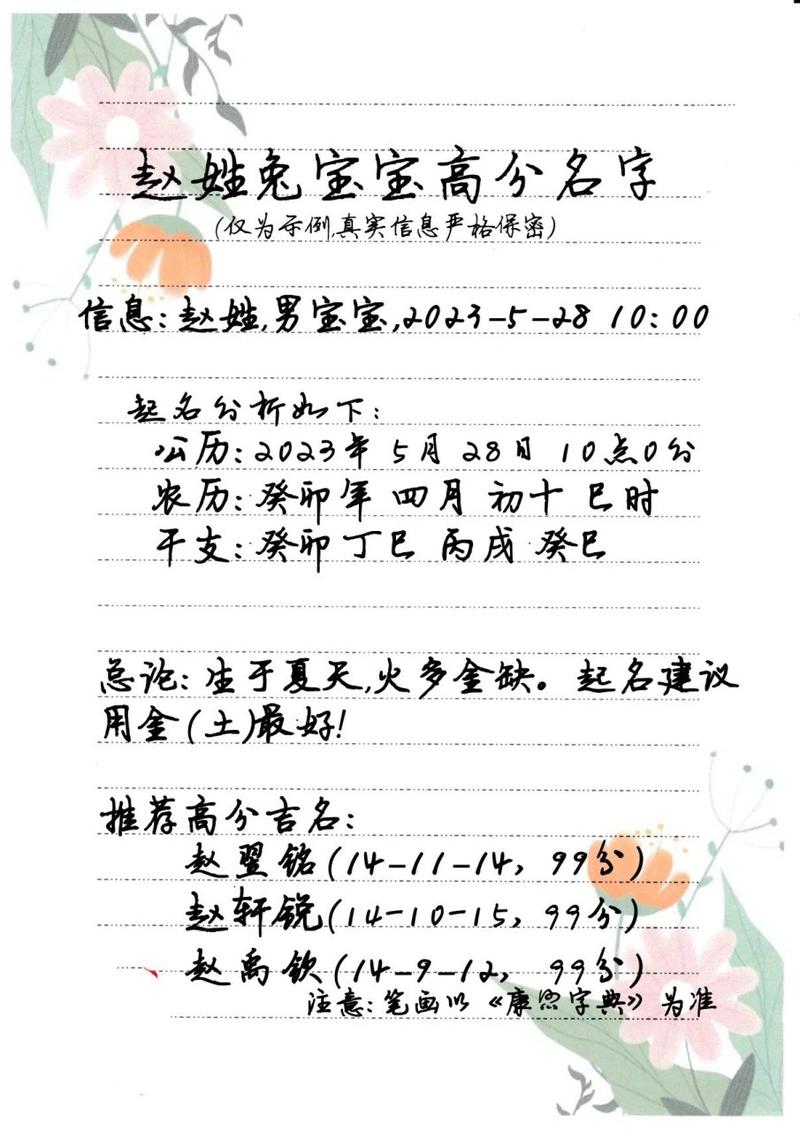 赵姓兔宝宝高分名字
(仅为示例,真实信息严格保密)
信息:赵姓,男宝宝,2023-5-28 10:00
起名分析如下:
公历:2023年 5月 28日 10点0分
农历:癸卯年 四月 初十 巳时
干支:癸卯 丁巳 丙戌 癸巳
总论:生于夏天,火多金缺。起名建议
用金(土)最好!
推荐高分吉名:
赵翌铭(14-11-14, 99分)
赵轩锐(14-10-15, 99分)
赵禹钦(14-9-12, 99分)
注意:笔画以《康熙字典》为准